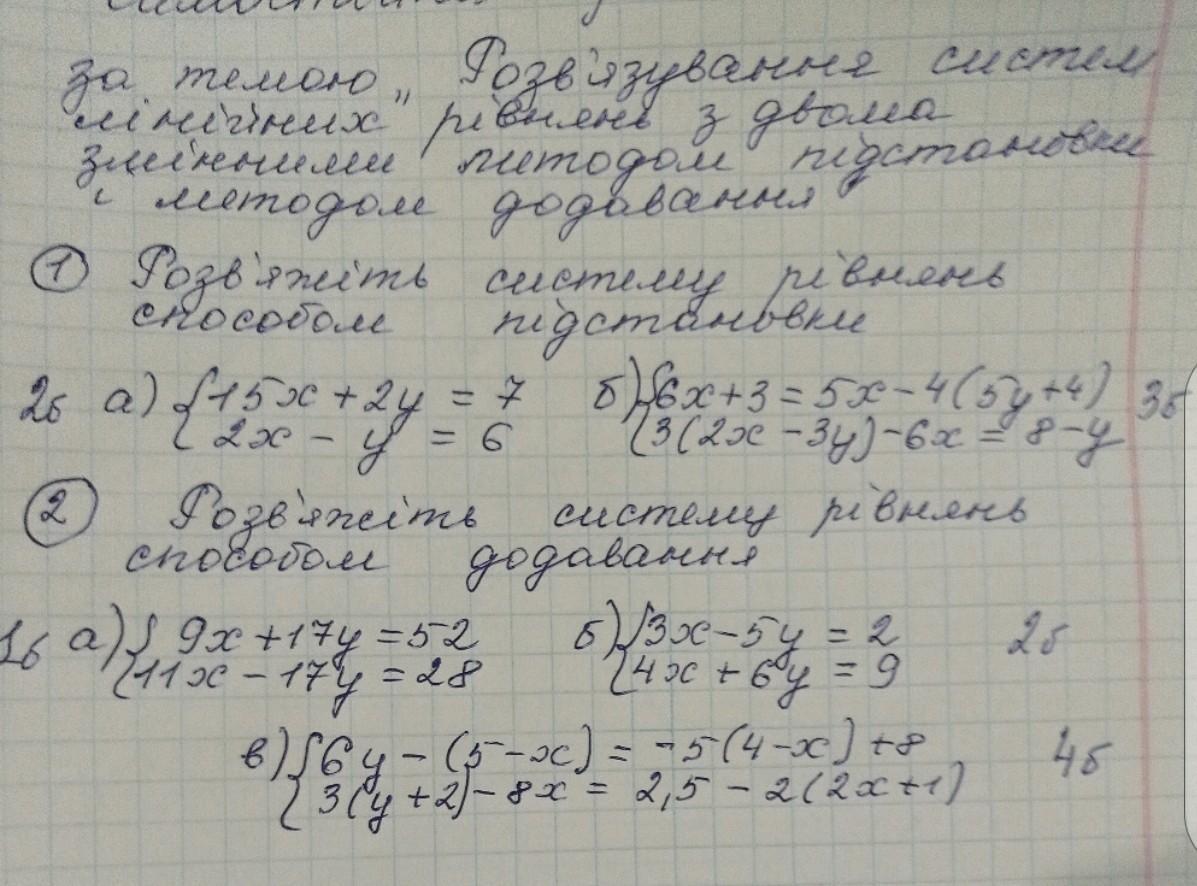 за темою „Розв'язування систем
лінійних" рівнянь з двома
змінними методом підстановки
і методом додавання
① Розв'яжіть систему рівнянь
способом підстановки
2б а) { 15x + 2y = 7 б) { 6x + 3 = 5x - 4(5y + 4) 3б
2x - y = 6 3(2x - 3y) - 6x = 8 - y
② Розв'яжіть систему рівнянь
способом додавання
1б а) { 9x + 17y = 52 б) { 3x - 5y = 2 2б
11x - 17y = 28 4x + 6y = 9
в) { 6y - (5 - x) = -5(4 - x) + 8 4б
3(y + 2) - 8x = 2,5 - 2(2x + 1)